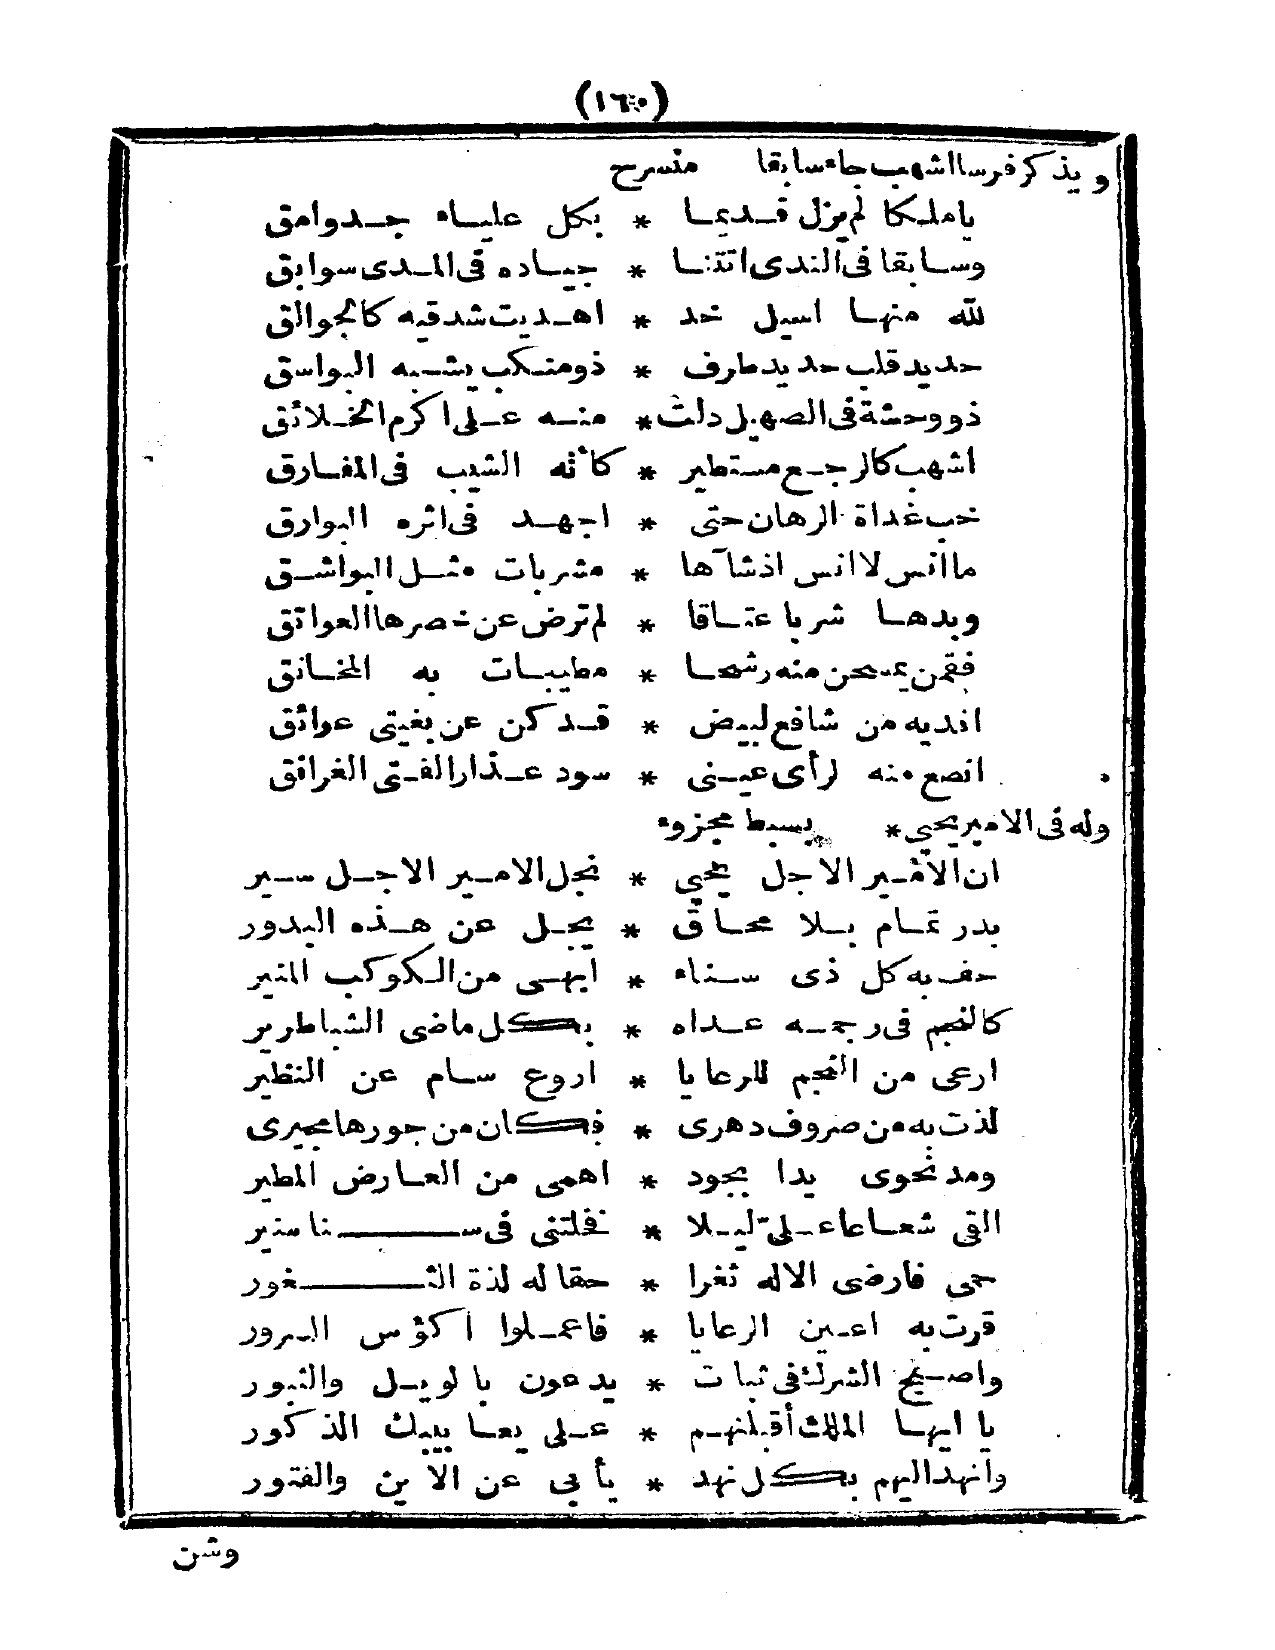 (١٦٠)
ويذكر فرسا اشهب جاء سابقا منسرح
ياملكا لم يزل قديما * بكل علياء جد وامق
وسابقا فى الندى اتتنا * جياده فى المدى سوابق
لله منها اسيل خد * اهديت شدقيه كالجوالق
حديد قلب حديد طرف * ذو منكب يشبه البواسق
ذو وحشة فى الصهيل دلت * منه على اكرم الخلائق
اشهب كالرجع مستطير * كأنه الشيب فى المفارق
خب غداة الرهان حتى * اجهد فى اثره البوارق
ما انس لا انس اذ شآها * مشربات مثل البواشق
وبدها شربا عتاقا * لم ترض عن خصرها العواتق
فقمن يمسحن منه رشحا * مطيبات به المخانق
افديه من شافع لبيض * قد كن عن بغيتى عوائق
انصع منه لرأى عينى * سود عذار الفتى الغرانق
وله فى الامير يحيى * بسيط مجزوء
ان الامير الاجل يحيي * نجل الامير الاجل سير
بدر تمام بلا محاق * يجل عن هذه البدور
حف به كل ذى سناء * ابهى من الكوكب المنير
كالنجم فى رجمه عداه * بكل ماضى الشبا طرير
ارعى من النجم للرعايا * اروع سام عن النظير
لذت به من صروف دهرى * فكان من جورها مجيرى
ومد نحوى يدا بجود * اهمى من العارض المطير
القى شعاعا على ليلا * فخلتنى فى سنا منير
حمى فارضى الاله ثغرا * حقا له لذة الثغور
قرت به اعين الرعايا * فاعملوا اكؤس السرور
واصبح الشرك فى ثبات * يدعون بالويل والثبور
يا ايها الملك أقبلنهم * على يعابيبك الذكور
وانهد اليهم بكل نهد * يأبى عن الاين والفتور
وشن